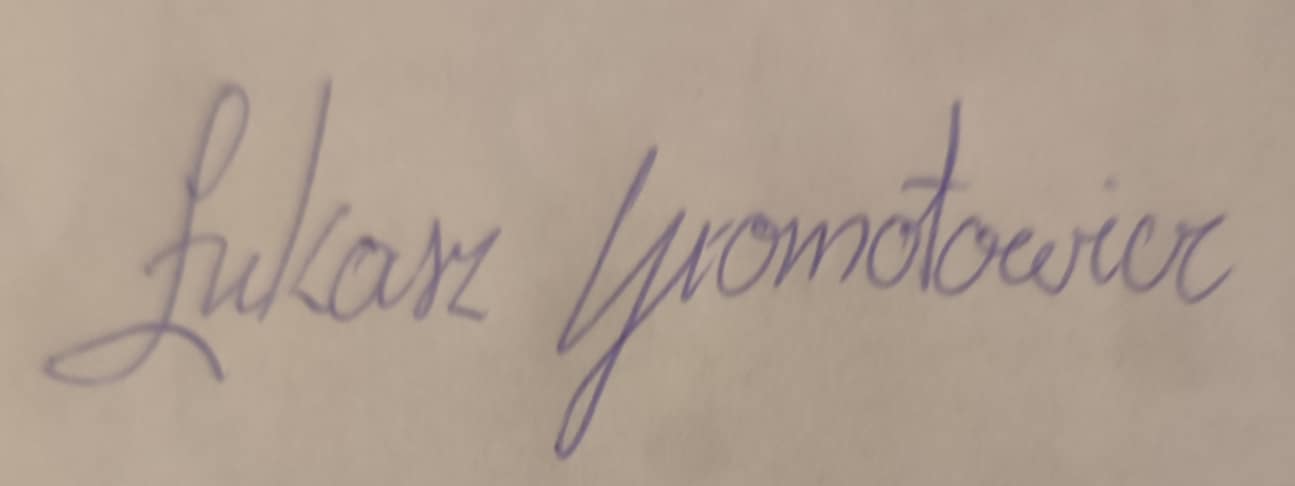 Łukasz Gromotowicz